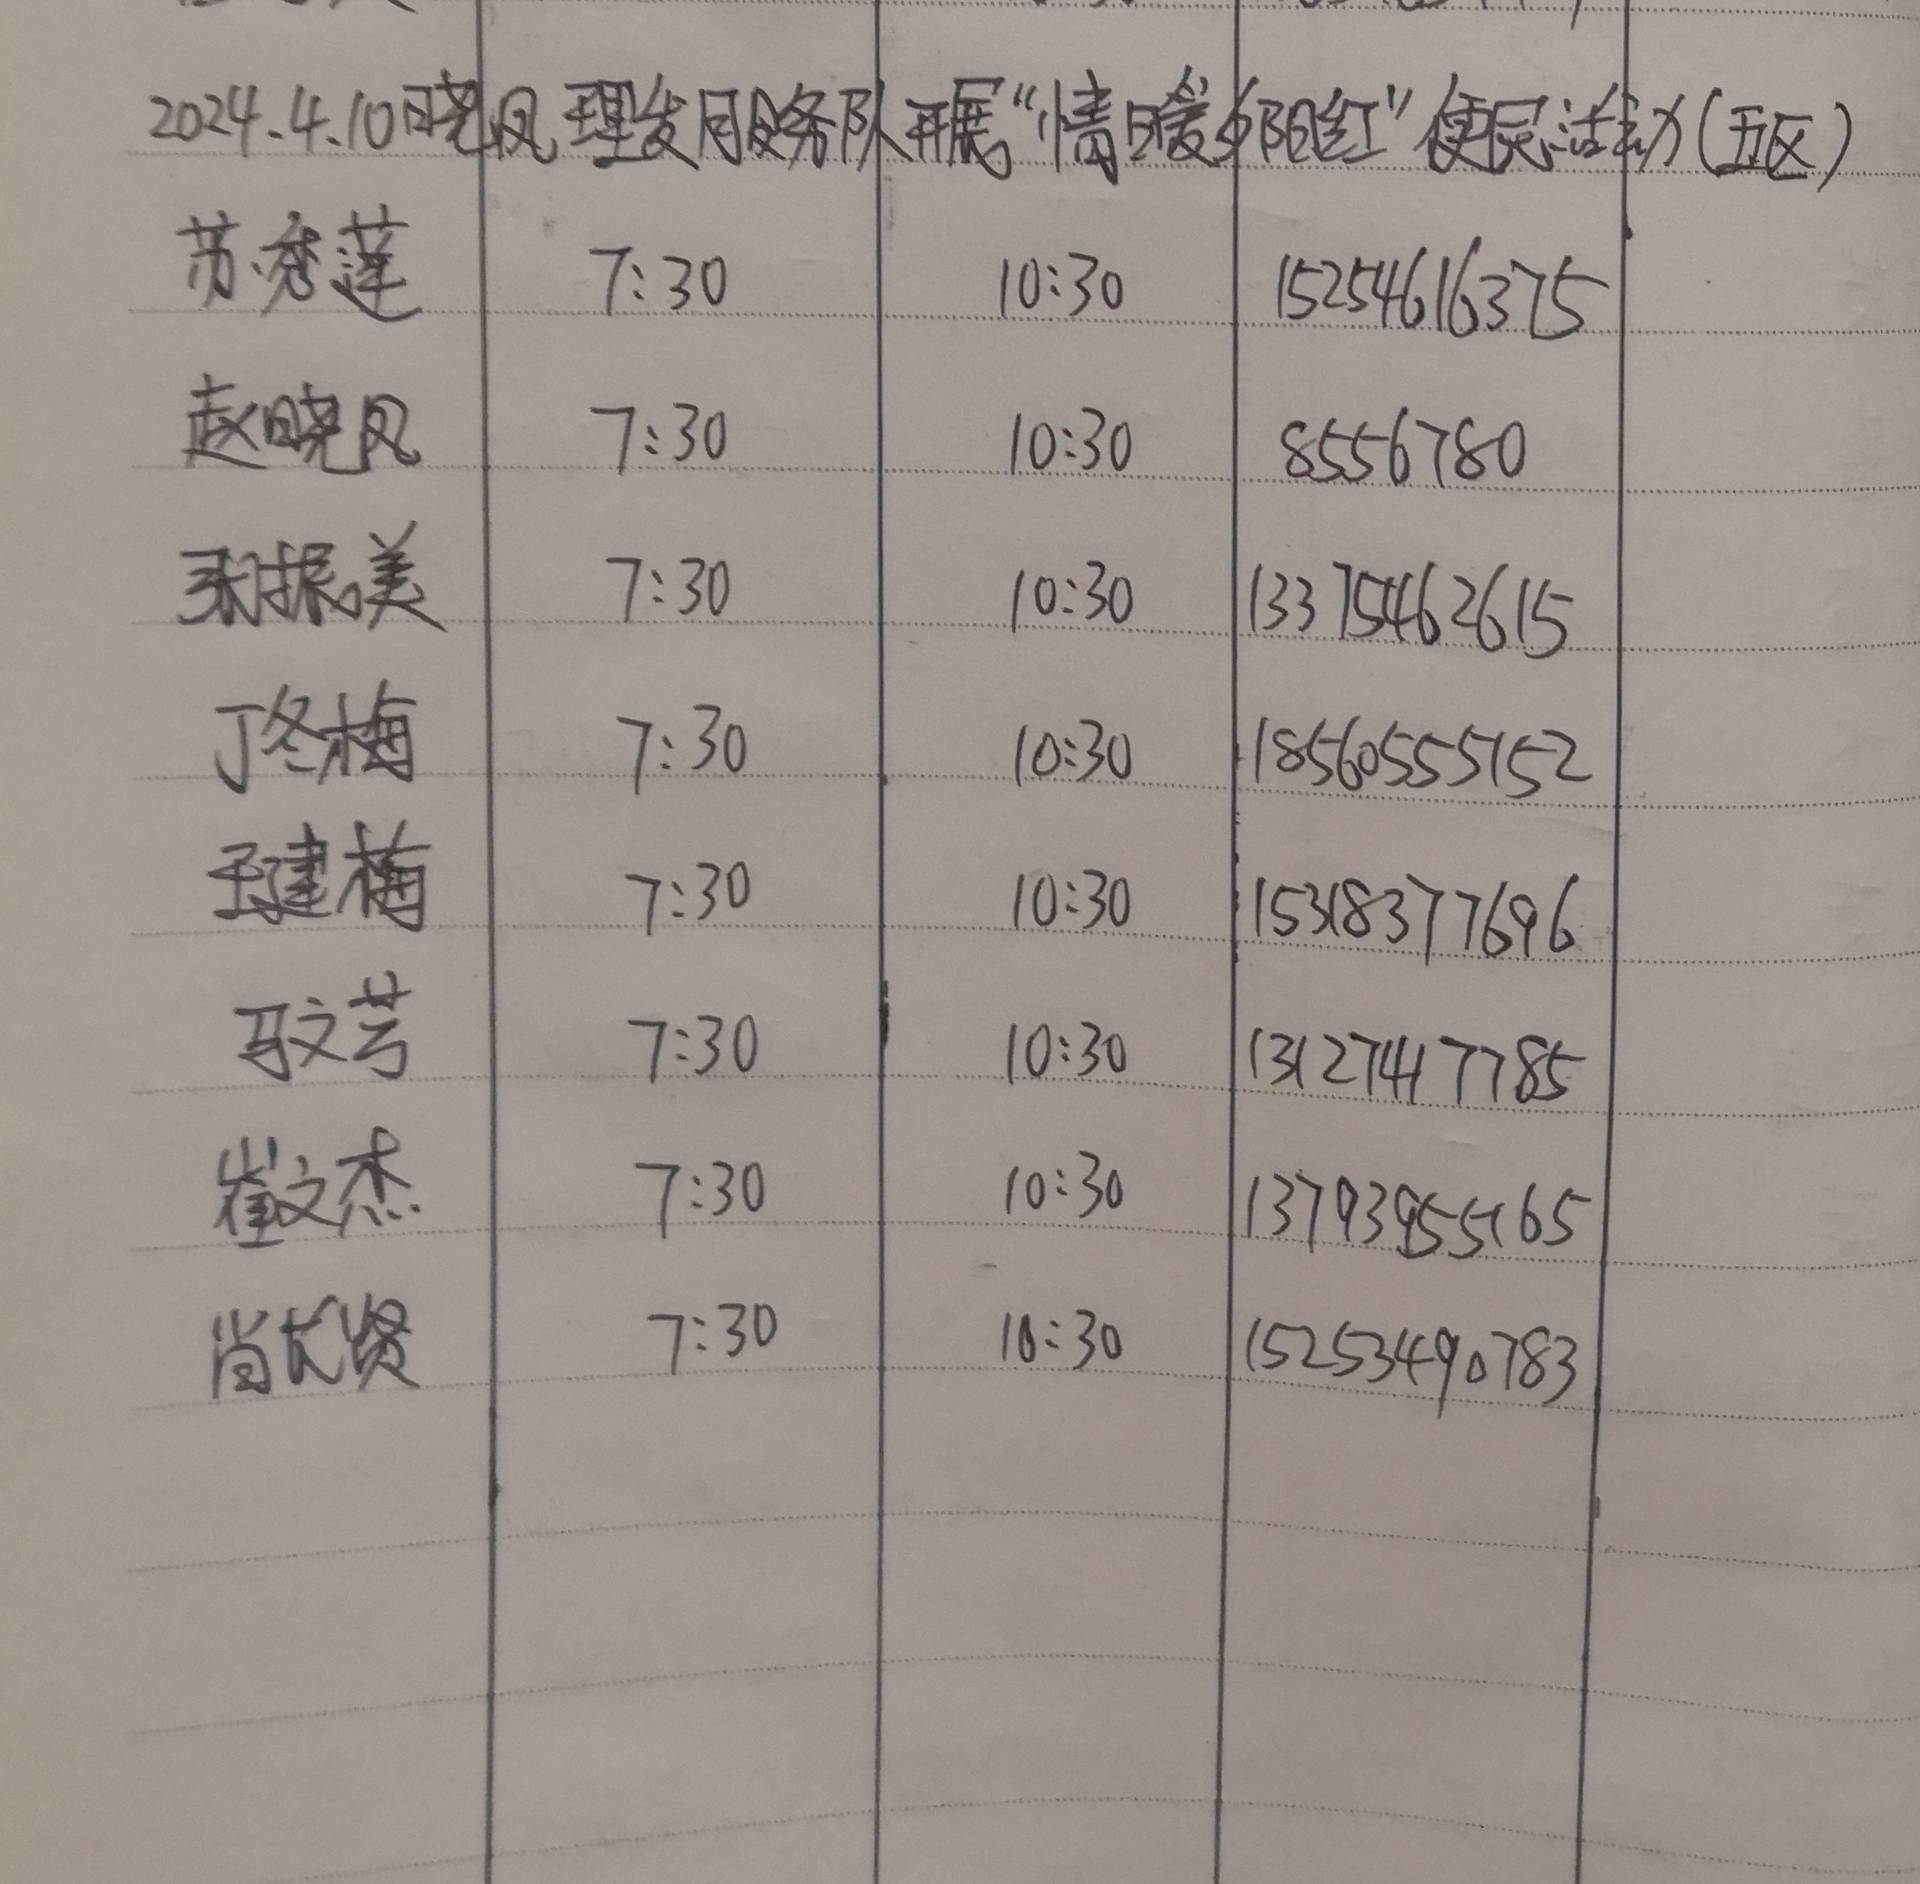 2024.4.10日晓风理发服务队开展“情暖夕阳红”便民活动(五区)
苏秀莲 7:30 10:30 15254616375
赵晓风 7:30 10:30 8556780
张振美 7:30 10:30 13375462615
丁冬梅 7:30 10:30 18560555152
王建梅 7:30 10:30 15318377696
马文芳 7:30 10:30 13127417785
崔文杰 7:30 10:30 13793955165
尚长贤 7:30 10:30 15253490783